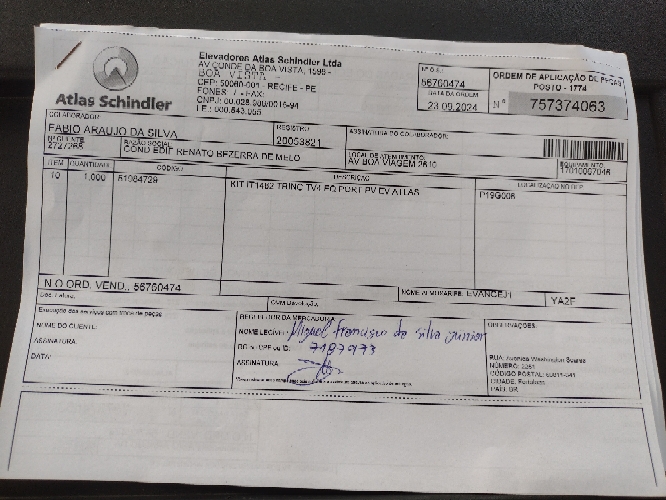 Atlas Schindler
Elevadores Atlas Schindler Ltda
AV CONDE DA BOA VISTA, 1596 -
BOA VISTA -
CEP: 50060-001 - RECIFE - PE
FONES / - FAX:
CNPJ: 00.028.986/0016-94
I.E.: 000.643.055
Nº O.S.:
56760474
DATA DA ORDEM
23.09.2024
ORDEM DE APLICAÇÃO DE PEÇAS
POSTO - 1774
Nº 757374063
COLABORADOR:
FABIO ARAUJO DA SILVA
REGISTRO
20053821
ASSINATURA DO COLABORADOR:
Nº CLIENTE
RAZÃO SOCIAL
COND EDIF RENATO BEZERRA DE MELO
LOCAL DE ATENDIMENTO:
AV BOA VIAGEM 2610
EQUIPAMENTO
ITEM QUANTIDADE CÓDIGO DESCRIÇÃO LOCALIZAÇÃO NO DEP.
10 1,000 51984729 KIT IT1482 TRINC TV4 EQ PORT PV EV ATLAS P19G006
N O ORD. VEND.. 56760474
Com Devolução:
NOME ALMOXARIFE: EVANCEJ1
YA2F
Execução dos serviços com troca de peças
NOME DO CLIENTE:
ASSINATURA:
DATA:
RECEBEDOR DA MERCADORIA
NOME LEGÍVEL: Miguel Francisco da Silva Junior
RG ou CPF ou ID: 7197973
ASSINATURA:
OBSERVAÇÕES:
RUA: Avenida Washington Soares
NÚMERO: 3251
CÓDIGO POSTAL: 60811-341
CIDADE: Fortaleza
PAÍS: BR